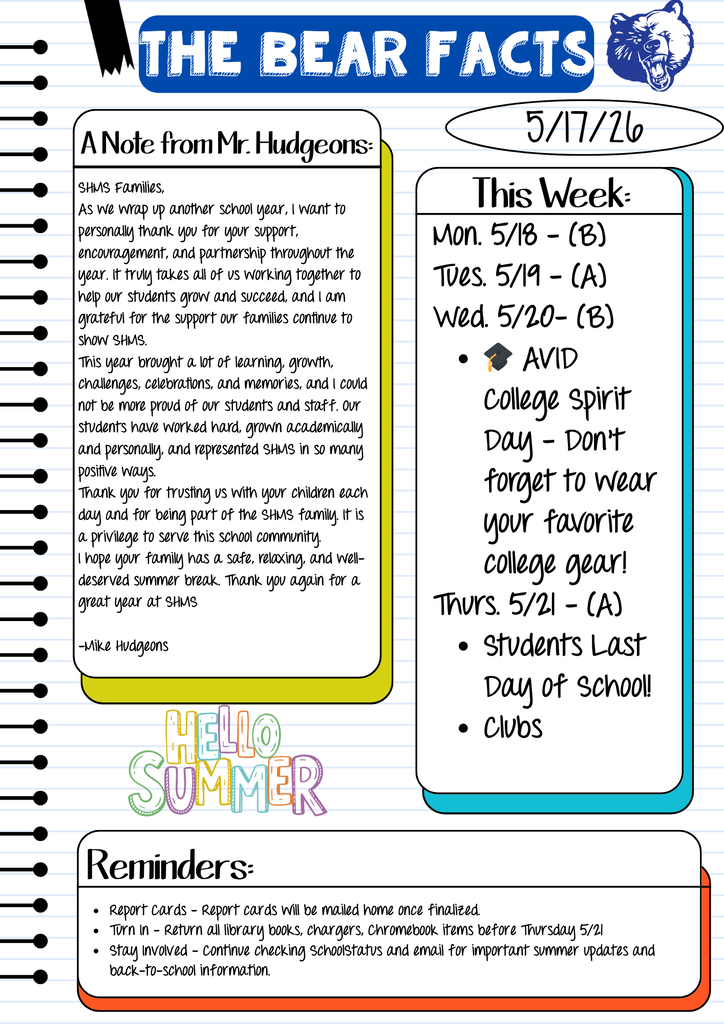 THE BEAR FACTS
5/17/26
A Note from Mr. Hudgeons:
SHMS Families,
As we wrap up another school year, I want to
personally thank you for your support,
encouragement, and partnership throughout the
year. It truly takes all of us working together to
help our students grow and succeed, and I am
grateful for the support our families continue to
show SHMS.
This year brought a lot of learning, growth,
challenges, celebrations, and memories, and I could
not be more proud of our students and staff. Our
students have worked hard, grown academically
and personally, and represented SHMS in so many
positive ways.
Thank you for trusting us with your children each
day and for being part of the SHMS family. It is
a privilege to serve this school community.
I hope your family has a safe, relaxing, and well-
deserved summer break. Thank you again for a
great year at SHMS
-Mike Hudgeons
HELLO
SUMMER
This Week:
Mon. 5/18 - (B)
Tues. 5/19 - (A)
Wed. 5/20- (B)
• 🎓 AVID
College Spirit
Day - Don't
forget to wear
your favorite
college gear!
Thurs. 5/21 - (A)
• Students Last
Day of School!
• Clubs
Reminders:
• Report Cards - Report cards will be mailed home once finalized.
• Turn In - Return all library books, chargers, Chromebook items before Thursday 5/21
• Stay Involved - Continue checking SchoolStatus and email for important summer updates and
back-to-school information.